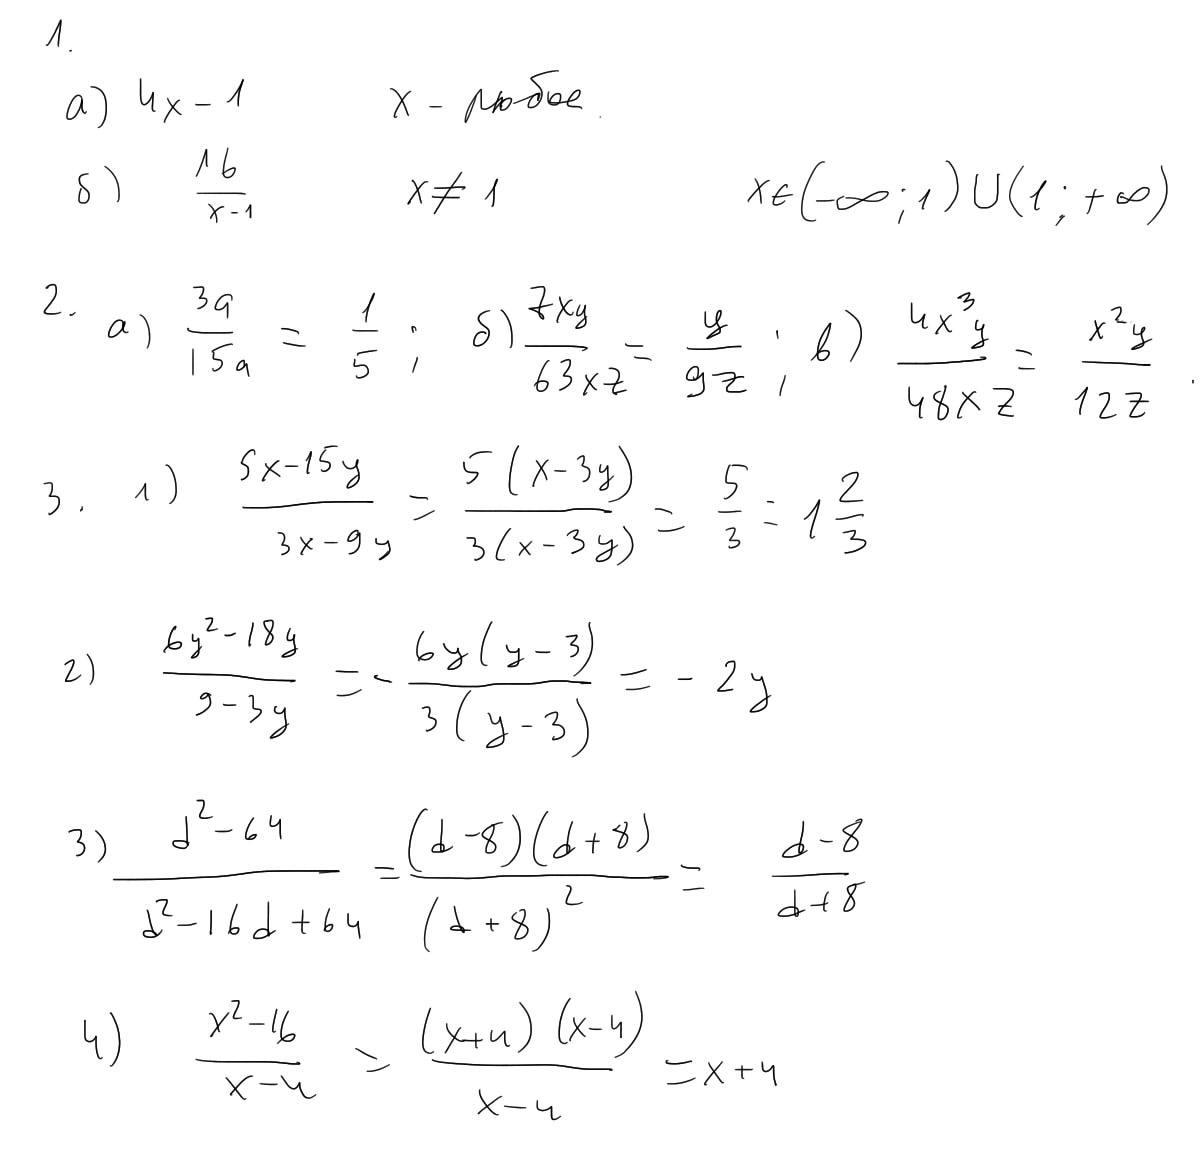 1.
а) 4x - 1 x - любое.
б) 16/(x-1) x ≠ 1 x∈(-∞;1)∪(1;+∞)
2. а) 3a/15a = 1/5; б) 7xy/63xz = y/9z; в) 4x³y/48xz = x²y/12z.
3. 1) (5x-15y)/(3x-9y) = 5(x-3y)/3(x-3y) = 5/3 = 1 2/3
2) (6y²-18y)/(9-3y) = - 6y(y-3)/3(y-3) = - 2y
3) (d²-64)/(d²-16d+64) = (d-8)(d+8)/(d+8)² = (d-8)/(d+8)
4) (x²-16)/(x-4) = (x+4)(x-4)/(x-4) = x+4